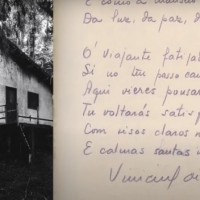 E como a mansão
Da luz, da paz, d
Ó viajante fatiga
Si no teu passo can
Aqui vieres pousar
Tu voltarás satisf
Com risos claros n
E calmas santas n